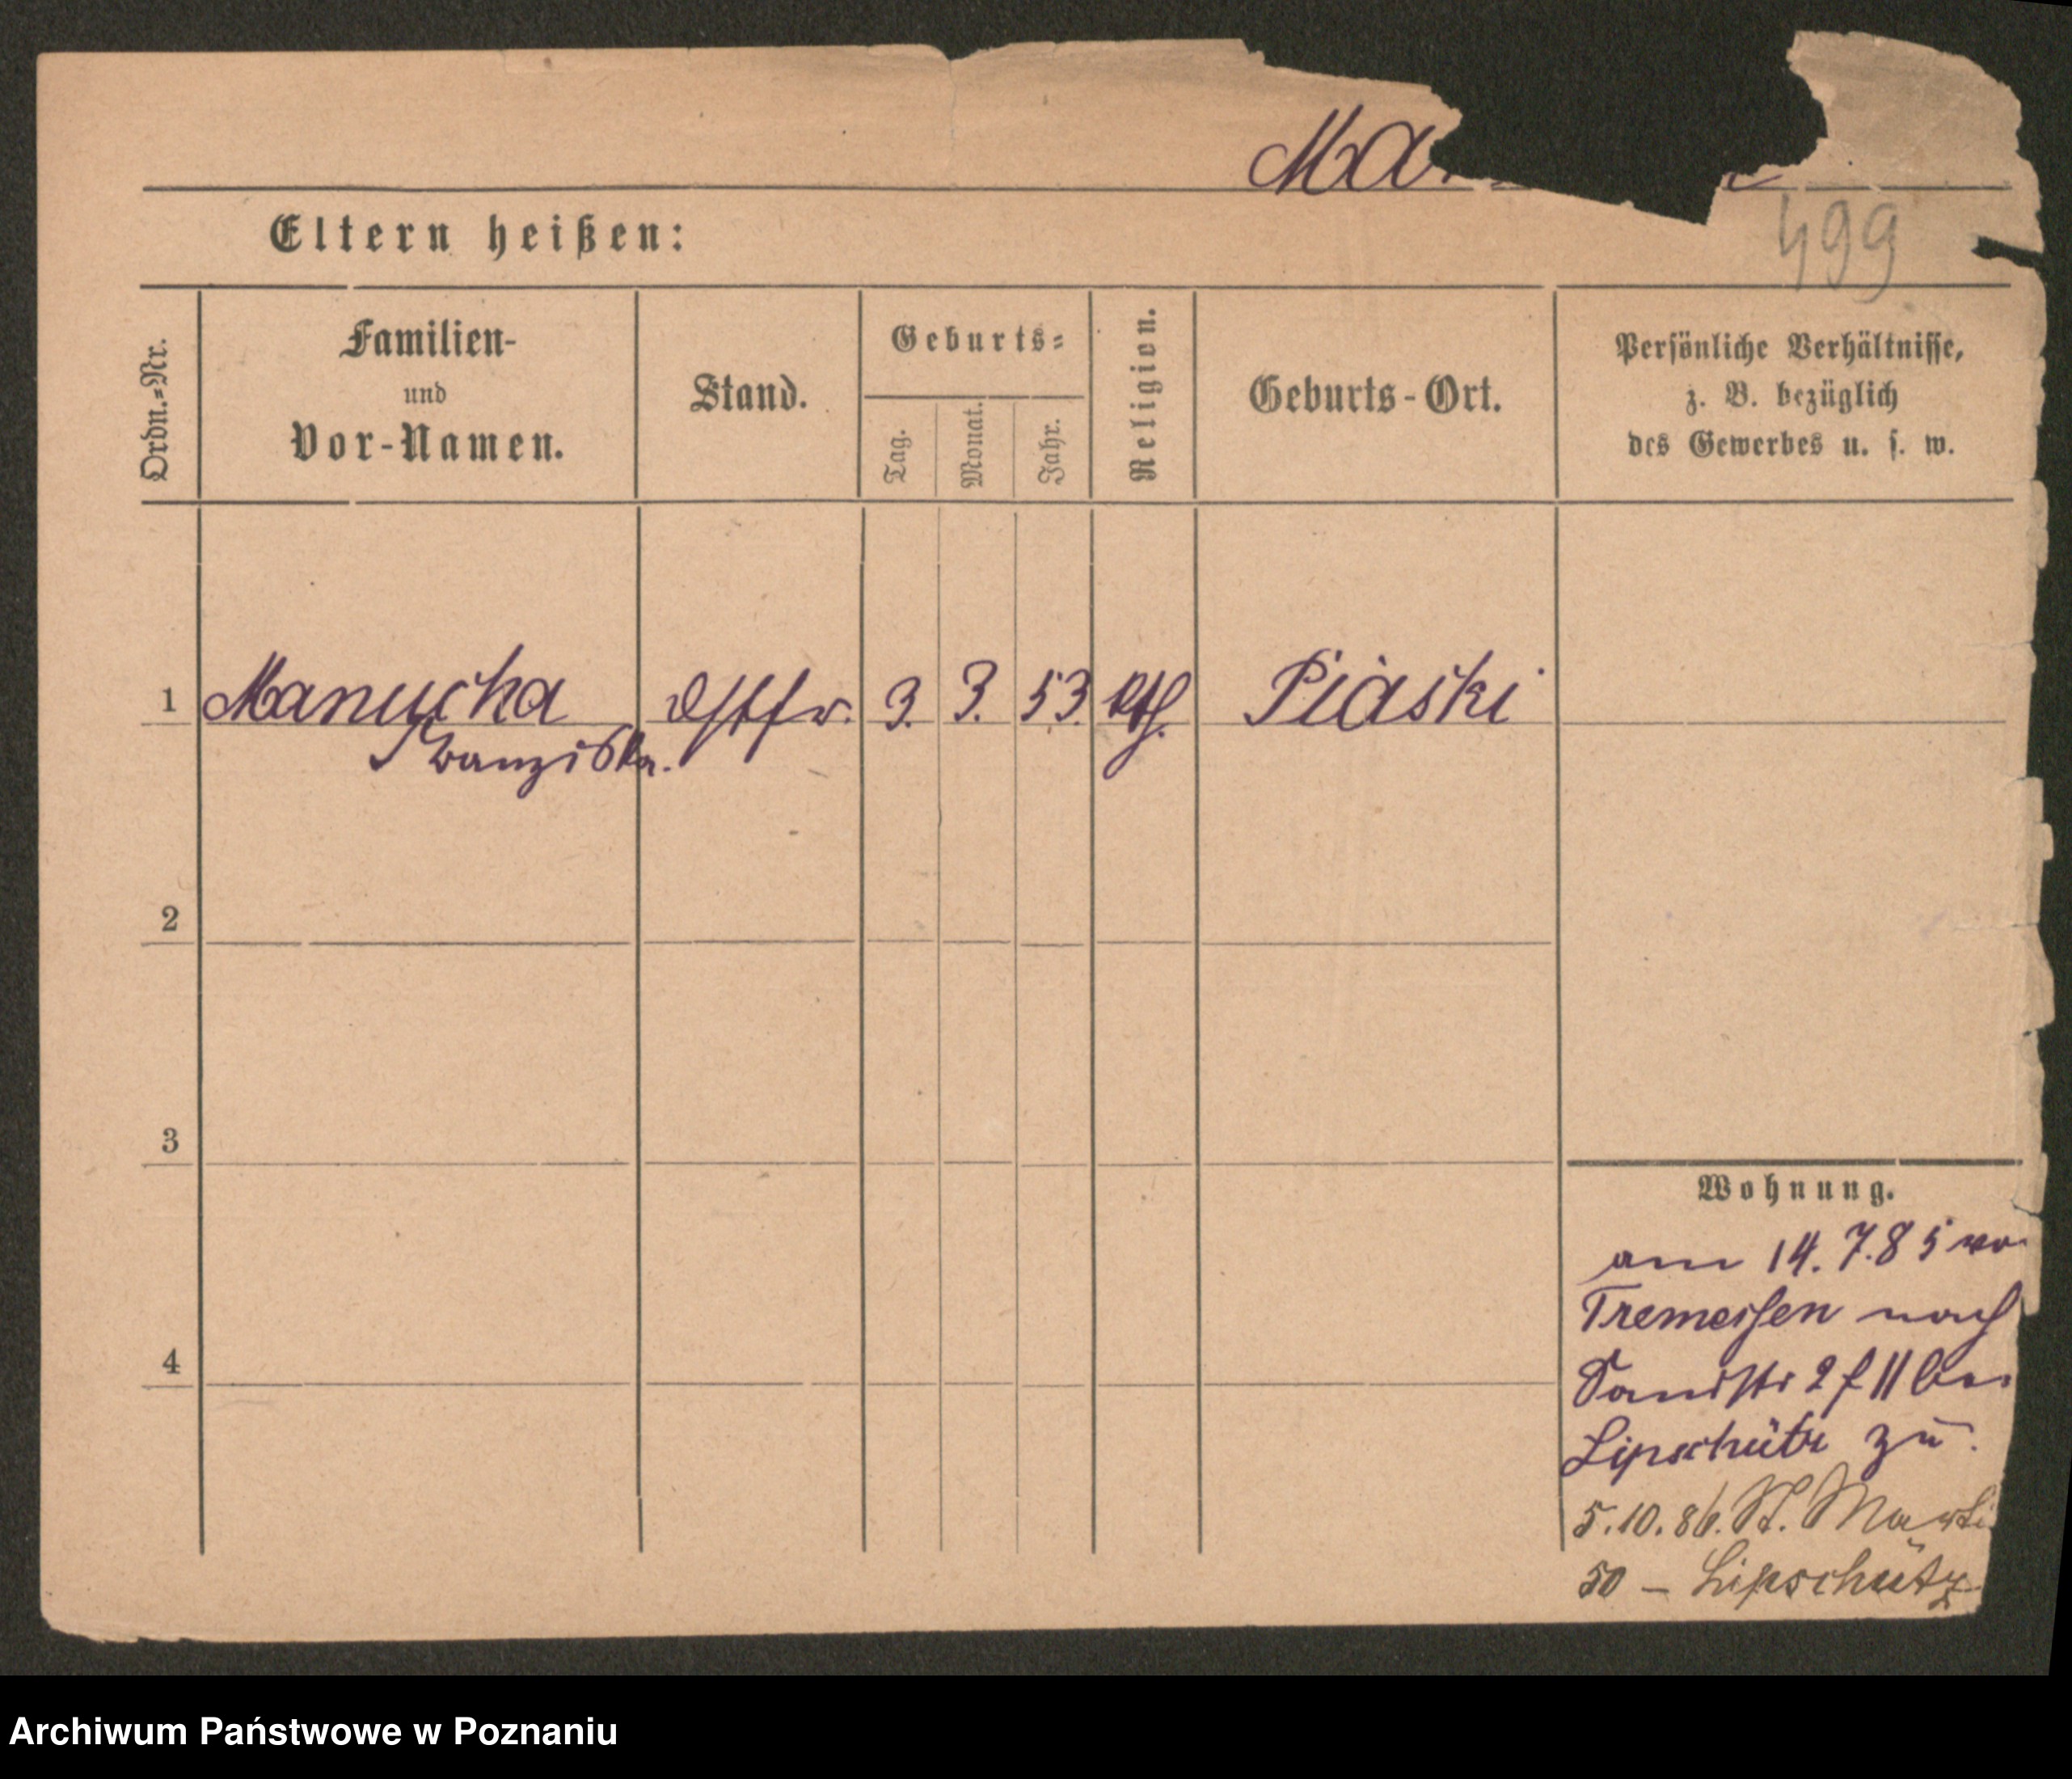 Ma
499
Eltern heißen:
Ordn.=Nr.
Familien-
und
Vor-Namen.
Stand.
Geburts=
Tag.
Monat.
Jahr.
Religion.
Geburts-Ort.
Persönliche Verhältnisse,
z. B. bezüglich
des Gewerbes u. s. w.
1 Manucha 3. 3. 53. kth. Piaski
Franziska.
2
3
4
Wohnung.
am 14.7.85 vo
Tremessen nach
Sandstr 2 f II bei
Lipschütz zu.
5.10.86. St. Marti
50 – Lipschütz
Archiwum Państwowe w Poznaniu